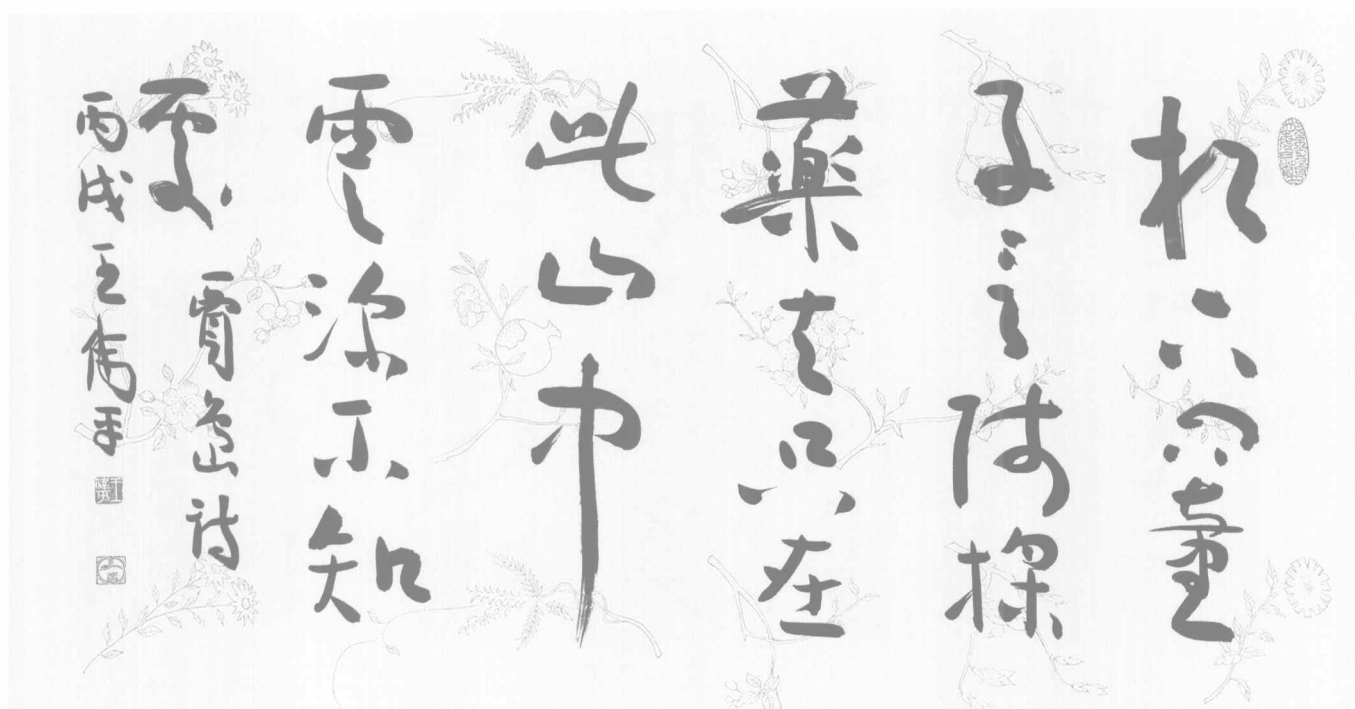 松下問童
子言師採
藥去只在
此山中
雲深不知
處
賈島詩
丙戌王偉平